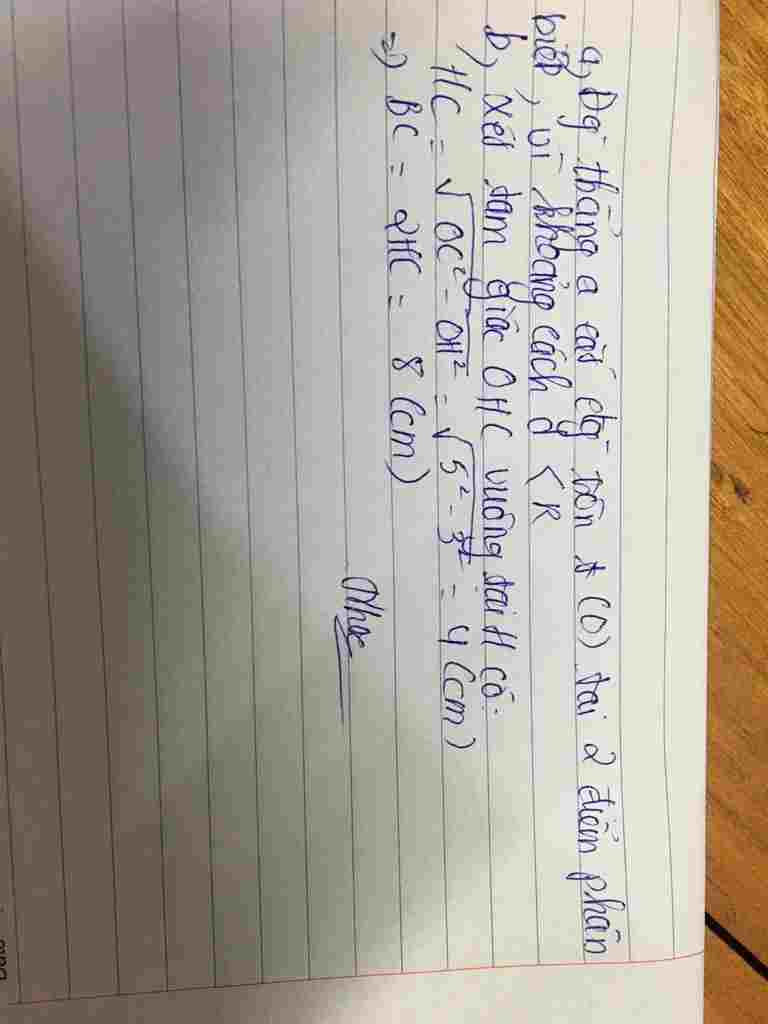 a, Đg thẳng a cắt đg tròn (O) tại 2 điểm phân
biệt, vì khoảng cách d < R
b, Xét tam giác OHC vuông tại H có:
HC = √OC² - OH² = √5² - 3² = 4 (cm)
=) BC = 2HC = 8 (cm)